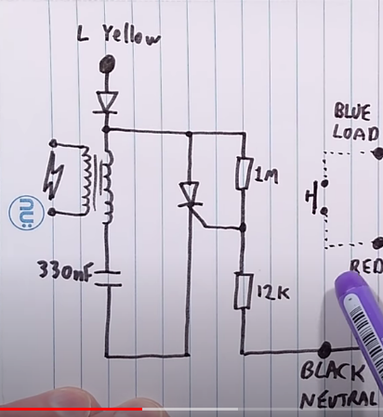 L Yellow
BLUE
LOAD
1M
330nF
RED
12K
BLACK
NEUTRAL